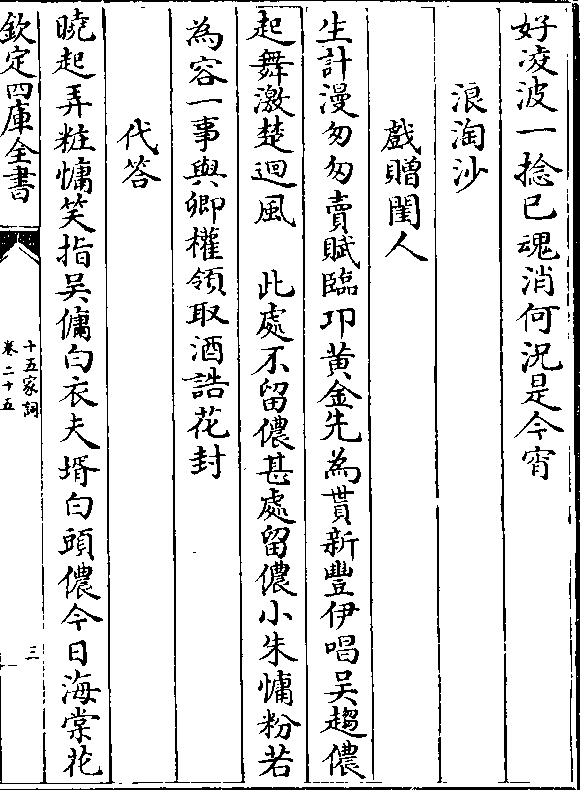 好凌波一捻已魂消何況是今宵
浪淘沙
戲贈閨人
生計漫匆匆賣賦臨卭黄金先為貰新豐伊唱吴趨儂
起舞激楚迴風　此處不留儂甚處留儂小朱慵粉若
為容一事與卿權領取酒誥花封
代答
曉起弄粧慵笑指吴傭白衣夫壻白頭儂今日海棠花
欽定四庫全書
十五家詞
卷二十五
三